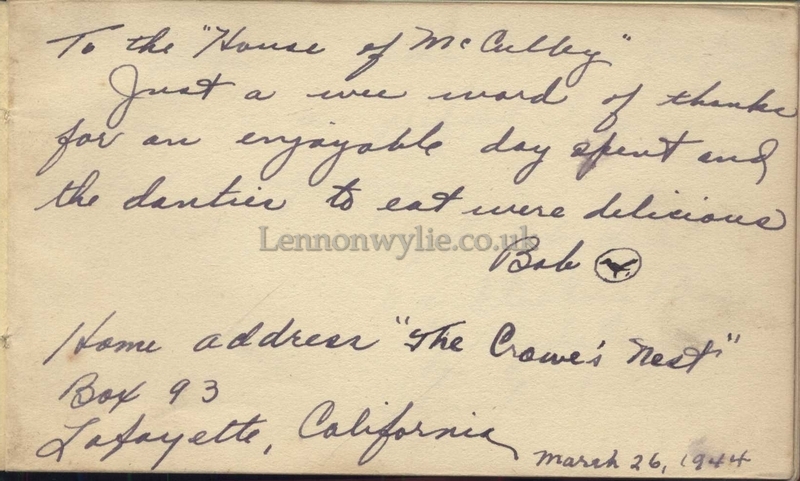 To the "House of McCulley"
Just a wee word of thanks
for an enjoyable day spent and
the danties to eat were delicious
Lennonwylie.co.uk
Bob
Home address "The Crowe's Nest"
Box 93
Lafayette, California
March 26, 1944